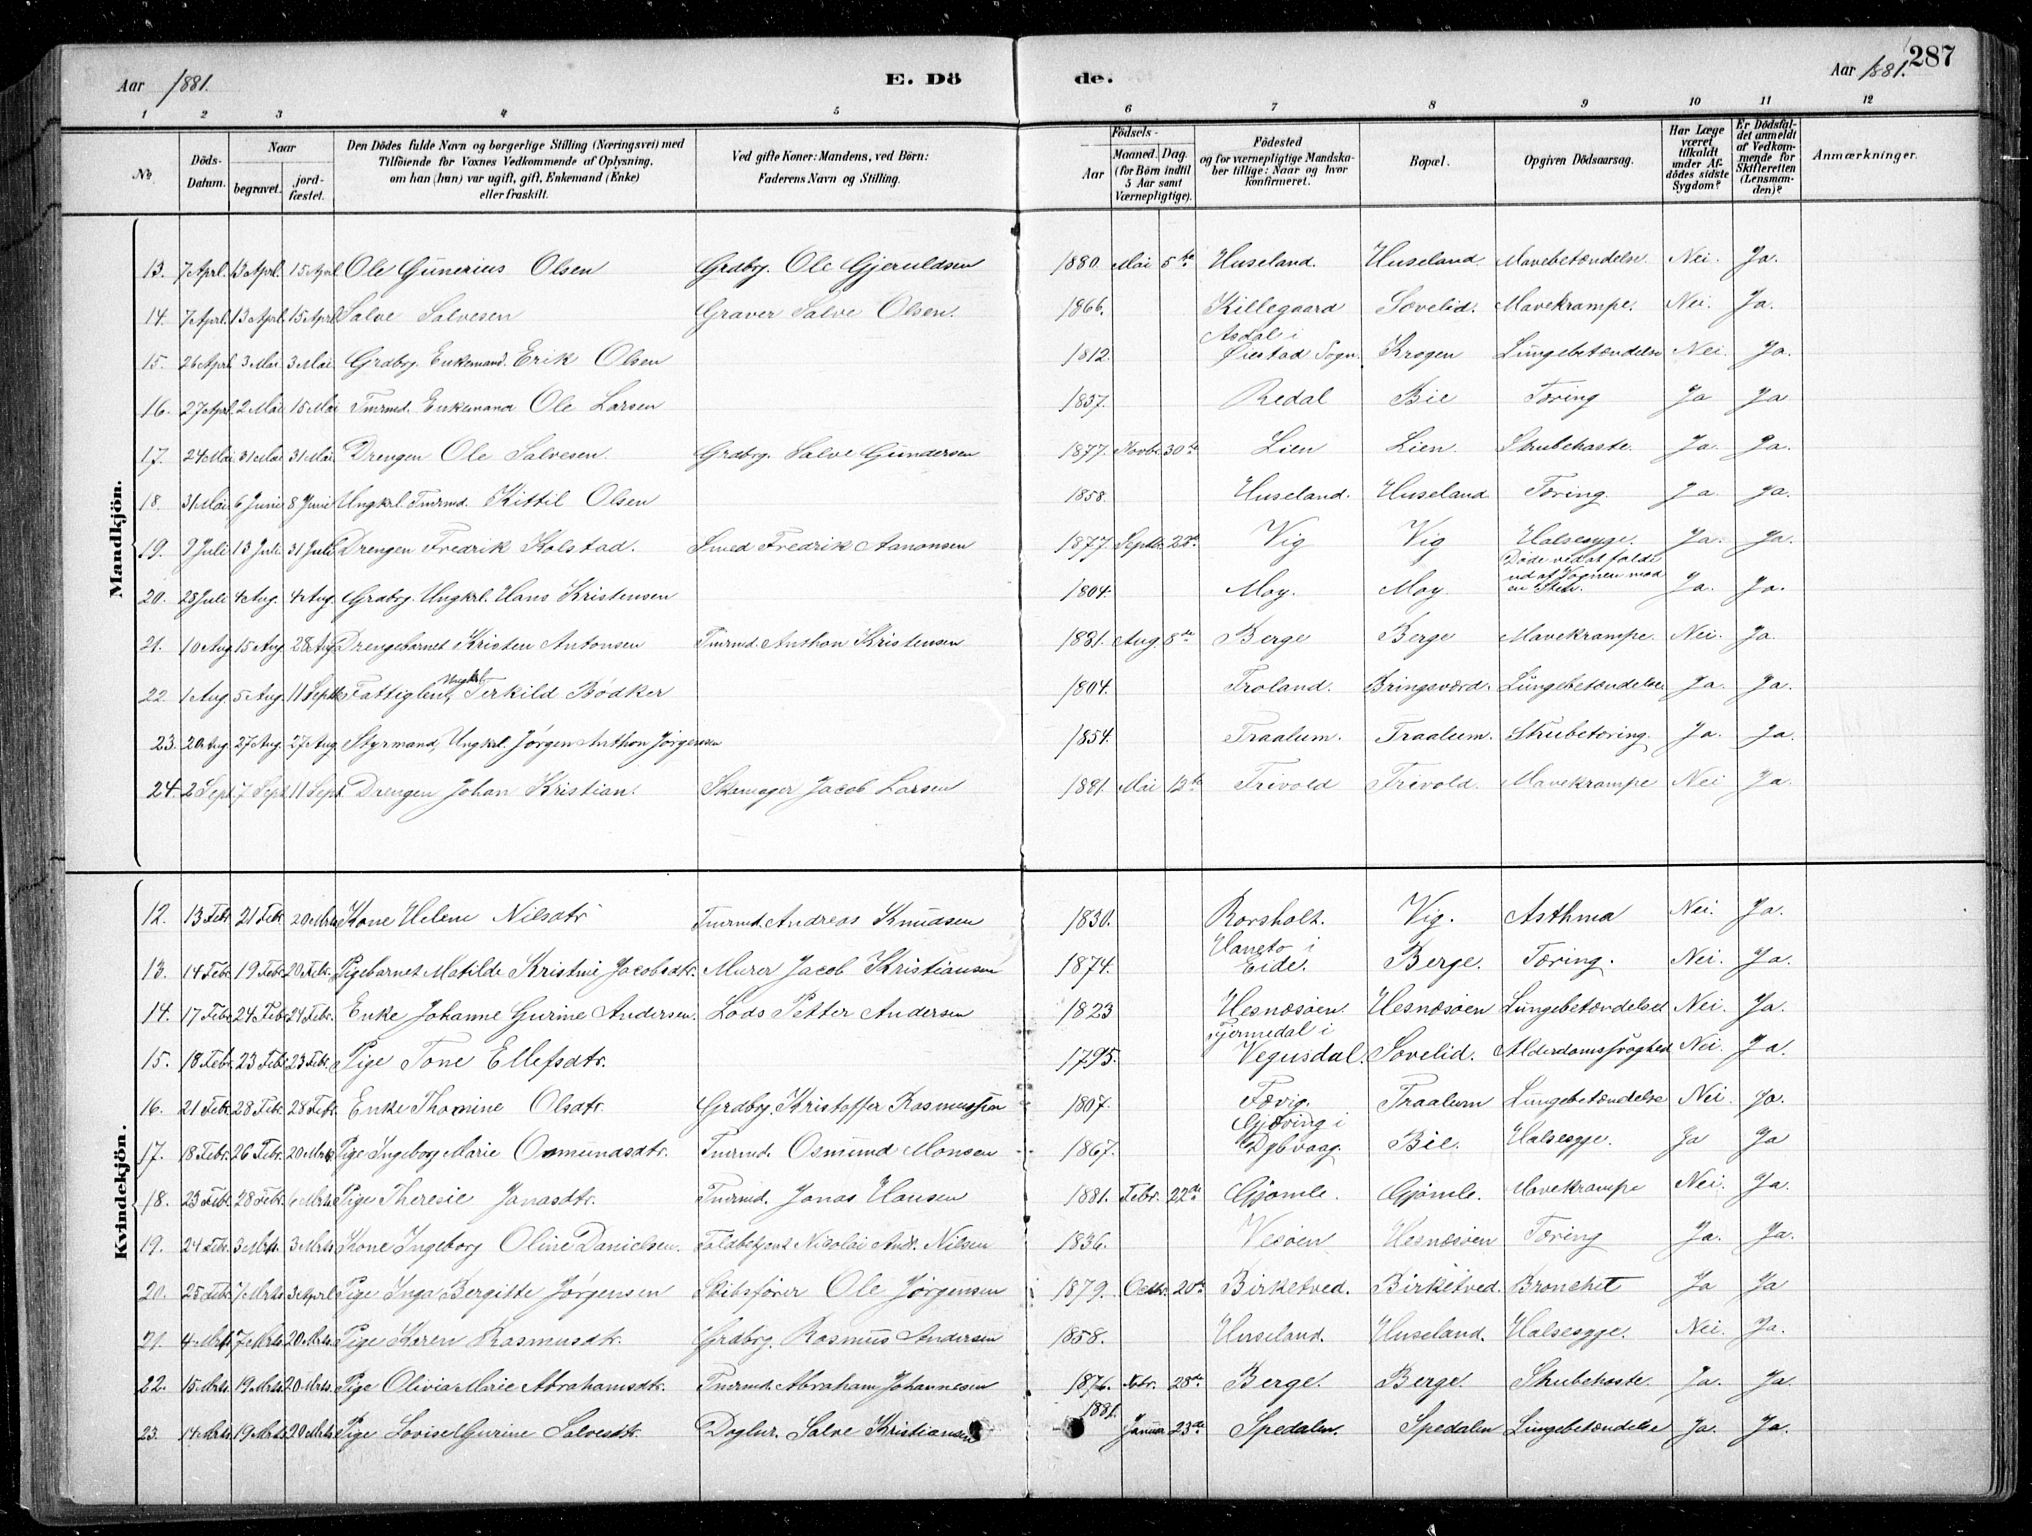 287
Aar 1881. E. Dö de. Aar 1881.
1 2 3 4 5 6 7 8 9 10 11 12
No. Döds-Datum. Naar begravet. jordfæstet. Den Dödes fulde Navn og borgerlige Stilling (Næringsvei) med Tilföiende for Voxnes Vedkommende af Oplysning, om han (hun) var ugift, gift, Enkemand (Enke) eller fraskilt. Ved gifte Koner: Mandens, ved Börn: Faderens Navn og Stilling. Födsels- Aar Maaned. Dag. (for Börn indtil 5 Aar samt Værnepligtige). Födested og for værnepligtige Mandskaber tillige: Naar og hvor konfirmeret. Bopæl. Opgiven Dödsaarsag. Har Læge været tilkaldt under Afdödes sidste Sygdom? Er Dödsfaldet anmeldt af Vedkommende for Skifteretten (Lensmanden)? Anmærkninger.
Mandkjön.
13. 7 Aprl. 13 Aprl. 15 Aprl Ole Gunerius Olsen Grdbrg. Ole Gjeruldsen 1880. Mai 5te Huseland. Huseland. Mavebetændelse Nei. Ja.
14. 7 Aprl. 13 Aprl. 15 Aprl. Salve Salvesen Graver Salve Olsen. 1866. Killegaard Sovelid. Mavekrampe. Nei. Ja.
15. 26 Aprl. 3 Mai 3 Mai Grdbrg. Enkemand. Erik Olsen 1812. Asdal i Øiestad Sogn. Krogen Lungebetændelse Nei. Ja.
16. 27 Aprl. 2 Mai 15 Mai Tmrmd. Enkemand Ole Larsen 1837. Redal Bie Tæring Ja Ja
17. 24 Mai 31 Mai 31 Mai Drengen Ole Salvesen. Grdbrg. Salve Gundersen 1877. Novbr. 30te Lien Lien. Strubehoste. Ja. Ja.
18. 31 Mai 6 Juni 8 Juni Ungkrl. Tmrmd. Kittil Olsen 1858. Huseland. Huseland Tæring. Ja. Ja.
19. 9 Juli 13 Juli 31 Juli Drengen Fredrik Kolstad. Smed Fredrik Aanonsen 1877. Septbr. 28de Vig Vig Halsesyge. Ja. Ja.
20. 28 Juli 4 Aug. 4 Aug. Grdbrg. Ungkrl. Hans Kristensen 1804. Moy. Moy. Døde ved at falde ud af Vognen mod en Sten. Ja. Ja.
21. 10 Aug 15 Aug 28 Aug Drengebarnet Kristen Antonsen Tmrmd. Anthon Kristensen 1881. Aug 8de Berge Berge Mavekrampe. Nei. Ja.
22. 1 Aug 5 Aug. 11 Septbr. Fattiglem, Ungkrl. Terkild Bødker 1804. Froland. Bringsværd. Lungebetændelse. Ja. Ja.
23. 20 Aug. 27 Aug. 27 Aug. Styrmand, Ungkrl. Jørgen Anthon Jørgensen 1854. Traalum. Traalum. Strubetæring. Ja. Ja.
24. 2 Sept. 7 Sept. 11 Sept. Drengen Johan Kristian. Skomager Jacob Larsen 1881. Mai 12te Frivold Frivold. Mavekrampe Nei Ja.
Kvindekjön.
12. 13 Febr. 21 Febr. 20 Mrts Kone Helene Nilsdtr Tmrmd. Andreas Knudsen 1830. Rorsholt. Vig. Asthma Nei. Ja.
13. 14 Febr. 19 Febr. 20 Febr. Pigebarnet Matilde Kristine Jacobsdtr. Murer Jacob Kristiansen 1874. Haneto i Eide. Berge. Tæring. Nei. Ja.
14. 17 Febr. 24 Febr. 24 Febr. Enke Johanne Gurine Andersen. Lods Petter Andersen 1823 Hesnæsøen. Hesnæsøen Lungebetændelse Nei. Ja.
15. 18 Febr. 23 Febr. 23 Febr. Pige Tone Ellefsdtr. 1795. Tjermedal i Vegusdal. Sovelid. Alderdomssvaghed. Nei. Ja.
16. 21 Febr. 28 Febr. 28 Febr. Enke Thomine Olsdtr. Grdbrg. Kristoffer Rasmussen 1807. Fævig. Traalum Lungebetændelse Nei. Ja.
17. 18 Febr. 26 Febr. 20 Mrts Pige Ingeborg Marie Osmundsdtr. Tmrmd. Osmund Monsen 1867. Gjæving i Dybvaag. Bie. Halsesyge. Ja Ja
18. 23 Febr. 28 Febr. 6 Mrts. Pige Theresie Jonasdtr. Tmrmd. Jonas Hansen 1881. Febr. 22de Gjømle. Gjømle. Mavekrampe Nei. Ja.
19. 24 Febr. 3 Mrts. 3 Mrts. Kone Ingeborg Oline Danielsen. Toldbetjent Nicolai Andr. Nilsen 1836. Vesøen Hesnæsøen Tæring Ja. Ja.
20. 25 Febr 7 Mrts. 3 Aprl. Pige Inga Bergitte Jørgensen Skibsfører Ole Jørgensen 1879. Octbr. 20de Birketved. Birketved. Bronchit Ja Ja
21. 4 Mrts 7 Mrts. 20 Mrts. Pige Karen Rasmusdtr. Grdbrg. Rasmus Andersen 1858. Huseland. Huseland. Halsesyge. Nei. Ja.
22. 15 Mrts. 19 Mrts. 20 Mrts. Pige Olivia Marie Abrahamsdtr. Tmrmd. Abraham Johannesen 1876. Nbr. 28de Berge. Berge. Strubehoste. Ja. Ja.
23. 14 Mrts. 19 Mrts. 20 Mrts. Pige Lovise Gurine Salvesdtr. Daglnr. Salve Kristiansen 1881. Januar 23de Spedalen. Spedalen Lungebetændelse Ja. Ja.